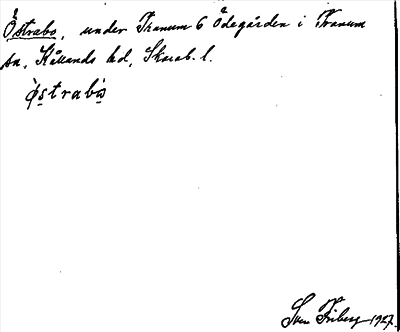 Östrabo, under Tranum 6 Ödegården i Tranum
sn, Kållands hd, Skarab. l.
östrabo
Sven Friberg 1927.